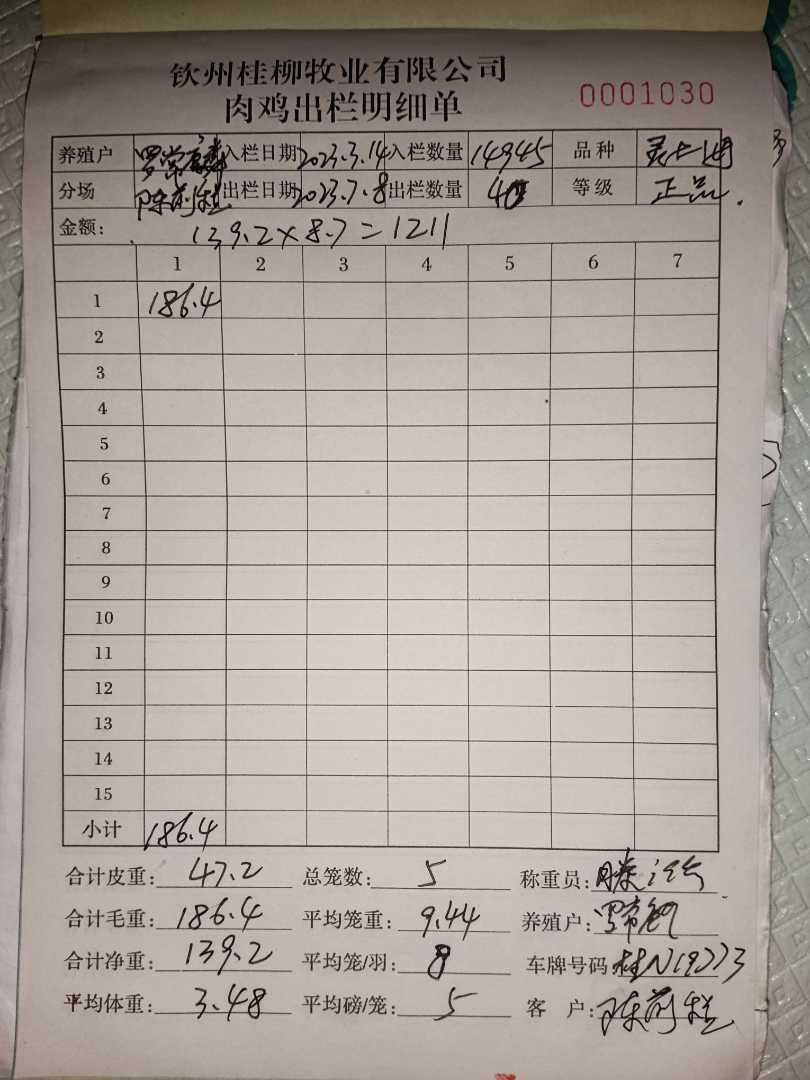 钦州桂柳牧业有限公司
肉鸡出栏明细单 0001030
养殖户 入栏日期 2023.3.14 入栏数量 14945 品种
分场 出栏日期 2023.7.8 出栏数量 40 等级 正品.
金额: 139.2×8.7=1211
1 2 3 4 5 6 7
1 186.4
2
3
4
5
6
7
8
9
10
11
12
13
14
15
小计 186.4
合计皮重: 47.2 总笼数: 5 称重员:
合计毛重: 186.4 平均笼重: 9.44 养殖户:
合计净重: 139.2 平均笼/羽: 8 车牌号码 桂N19273
平均体重: 3.48 平均磅/笼: 5 客 户: